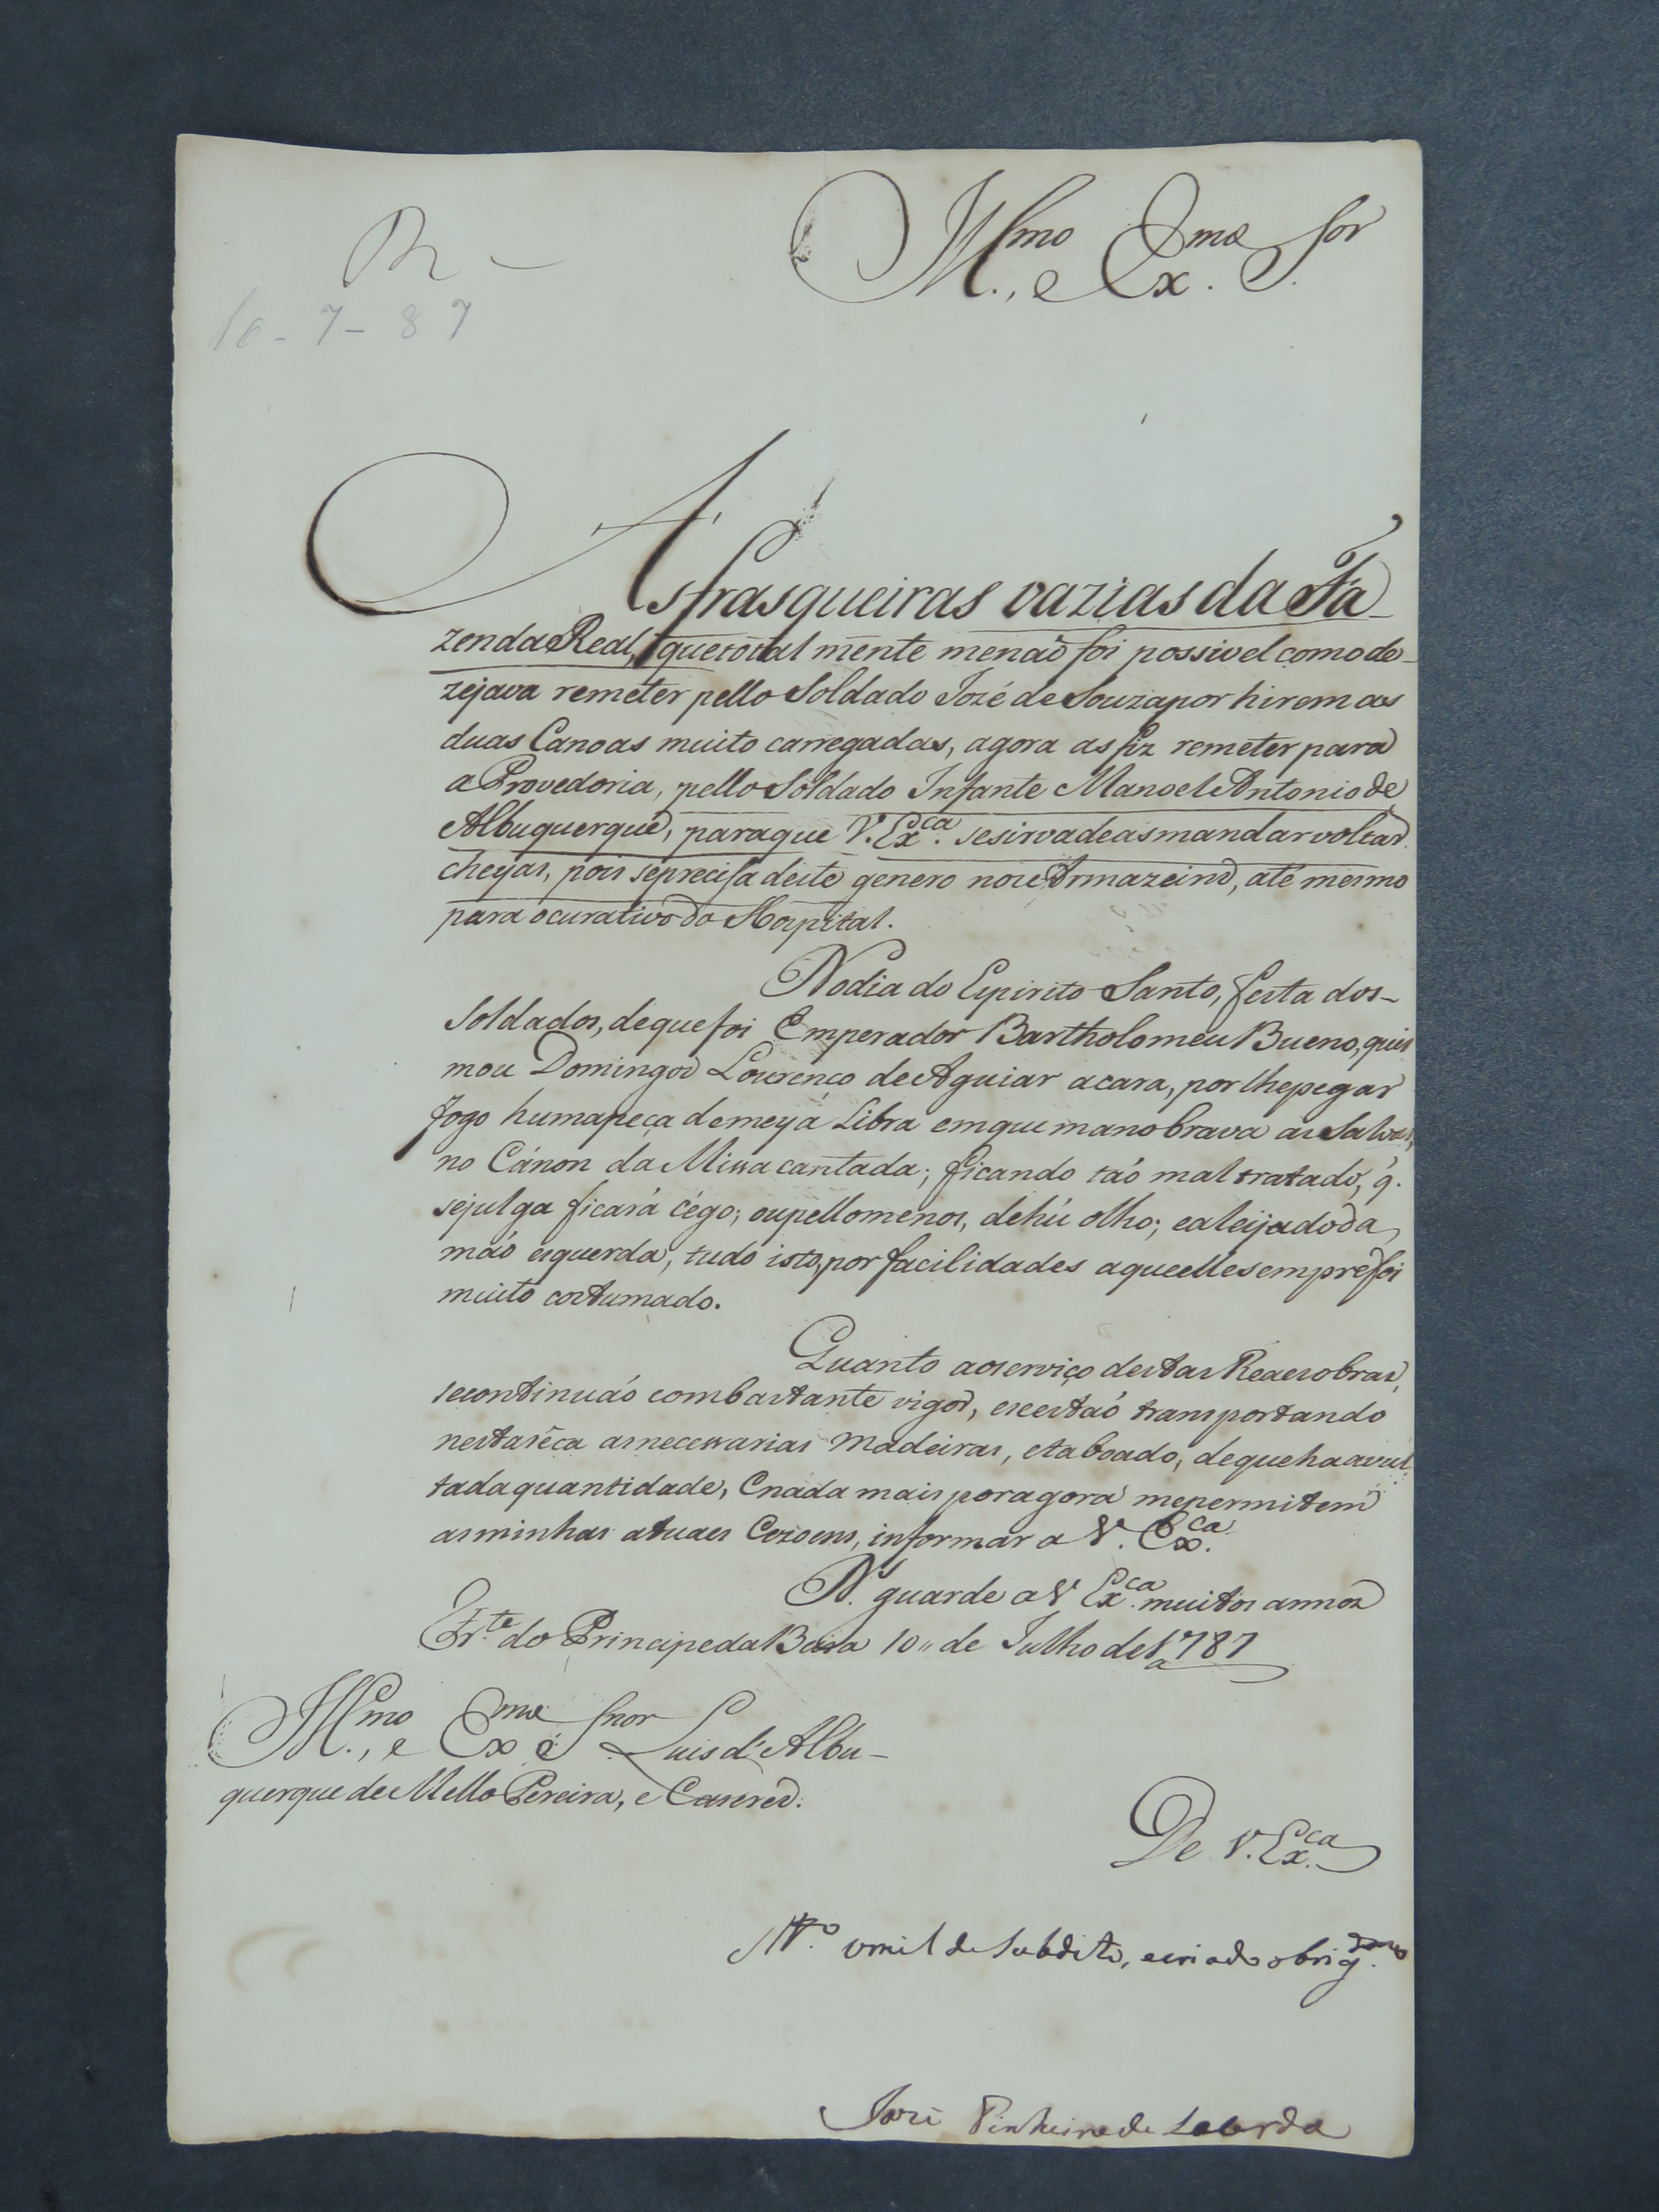 R
10-7-87
Ill.mo, e Ex.mo S.or
As frasqueiras vazias da Fa-
zenda Real, que total mente me naõ foi possivel como de-
zejava remeter pello Soldado Jozé de Souza por hirem as
duas Canoas muito carregadas, agora as fiz remeter para
a Provedoria, pello Soldado Infante Manoel Antonio de
Albuquerque, para que V. Ex.ca se sirva de as mandar voltar
cheyas, pois se precisa deste genero nos Armazeins, até mesmo
para o curativo do Hospital.
No dia do Espirito Santo, festa dos-
Soldados, de que foi Emperador Bartholomeu Bueno, quei
mou Domingos Lourenço de Aguiar a cara, por lhe pegar
fogo huma peça de meya Libra em que manobrava as Salvas,
no Cánon da Missa cantada; ficando taó mal tratado, q.
se julga ficará cégo; ou pello menos, de hú olho; e aleijado da
máo esquerda, tudo isto, por facilidades a que elle sempre foi
muito costumado.
Quanto ao serviço destas Reaes obras,
se continuaó com bastante vigor, e se estaó transportando
nesta sêca as necessarias Madeiras, e taboado, de que ha avul
tada quantidade, E nada mais por agora me permitem
as minhas atuaes Cezoens, informar a V. Ex.ca
N. S. guarde a V Ex.ca muitos annos
Fr.te do Principe da Beira 10 de Julho de 1787
Ill.mo, e Ex.mo S.nor Luis d'Albu-
querque de Mello Pereira, e Caseres.
De V. Ex.ca
M.to omilde Subdito, e criado obrig.mo
José Pinheiro de Lacerda